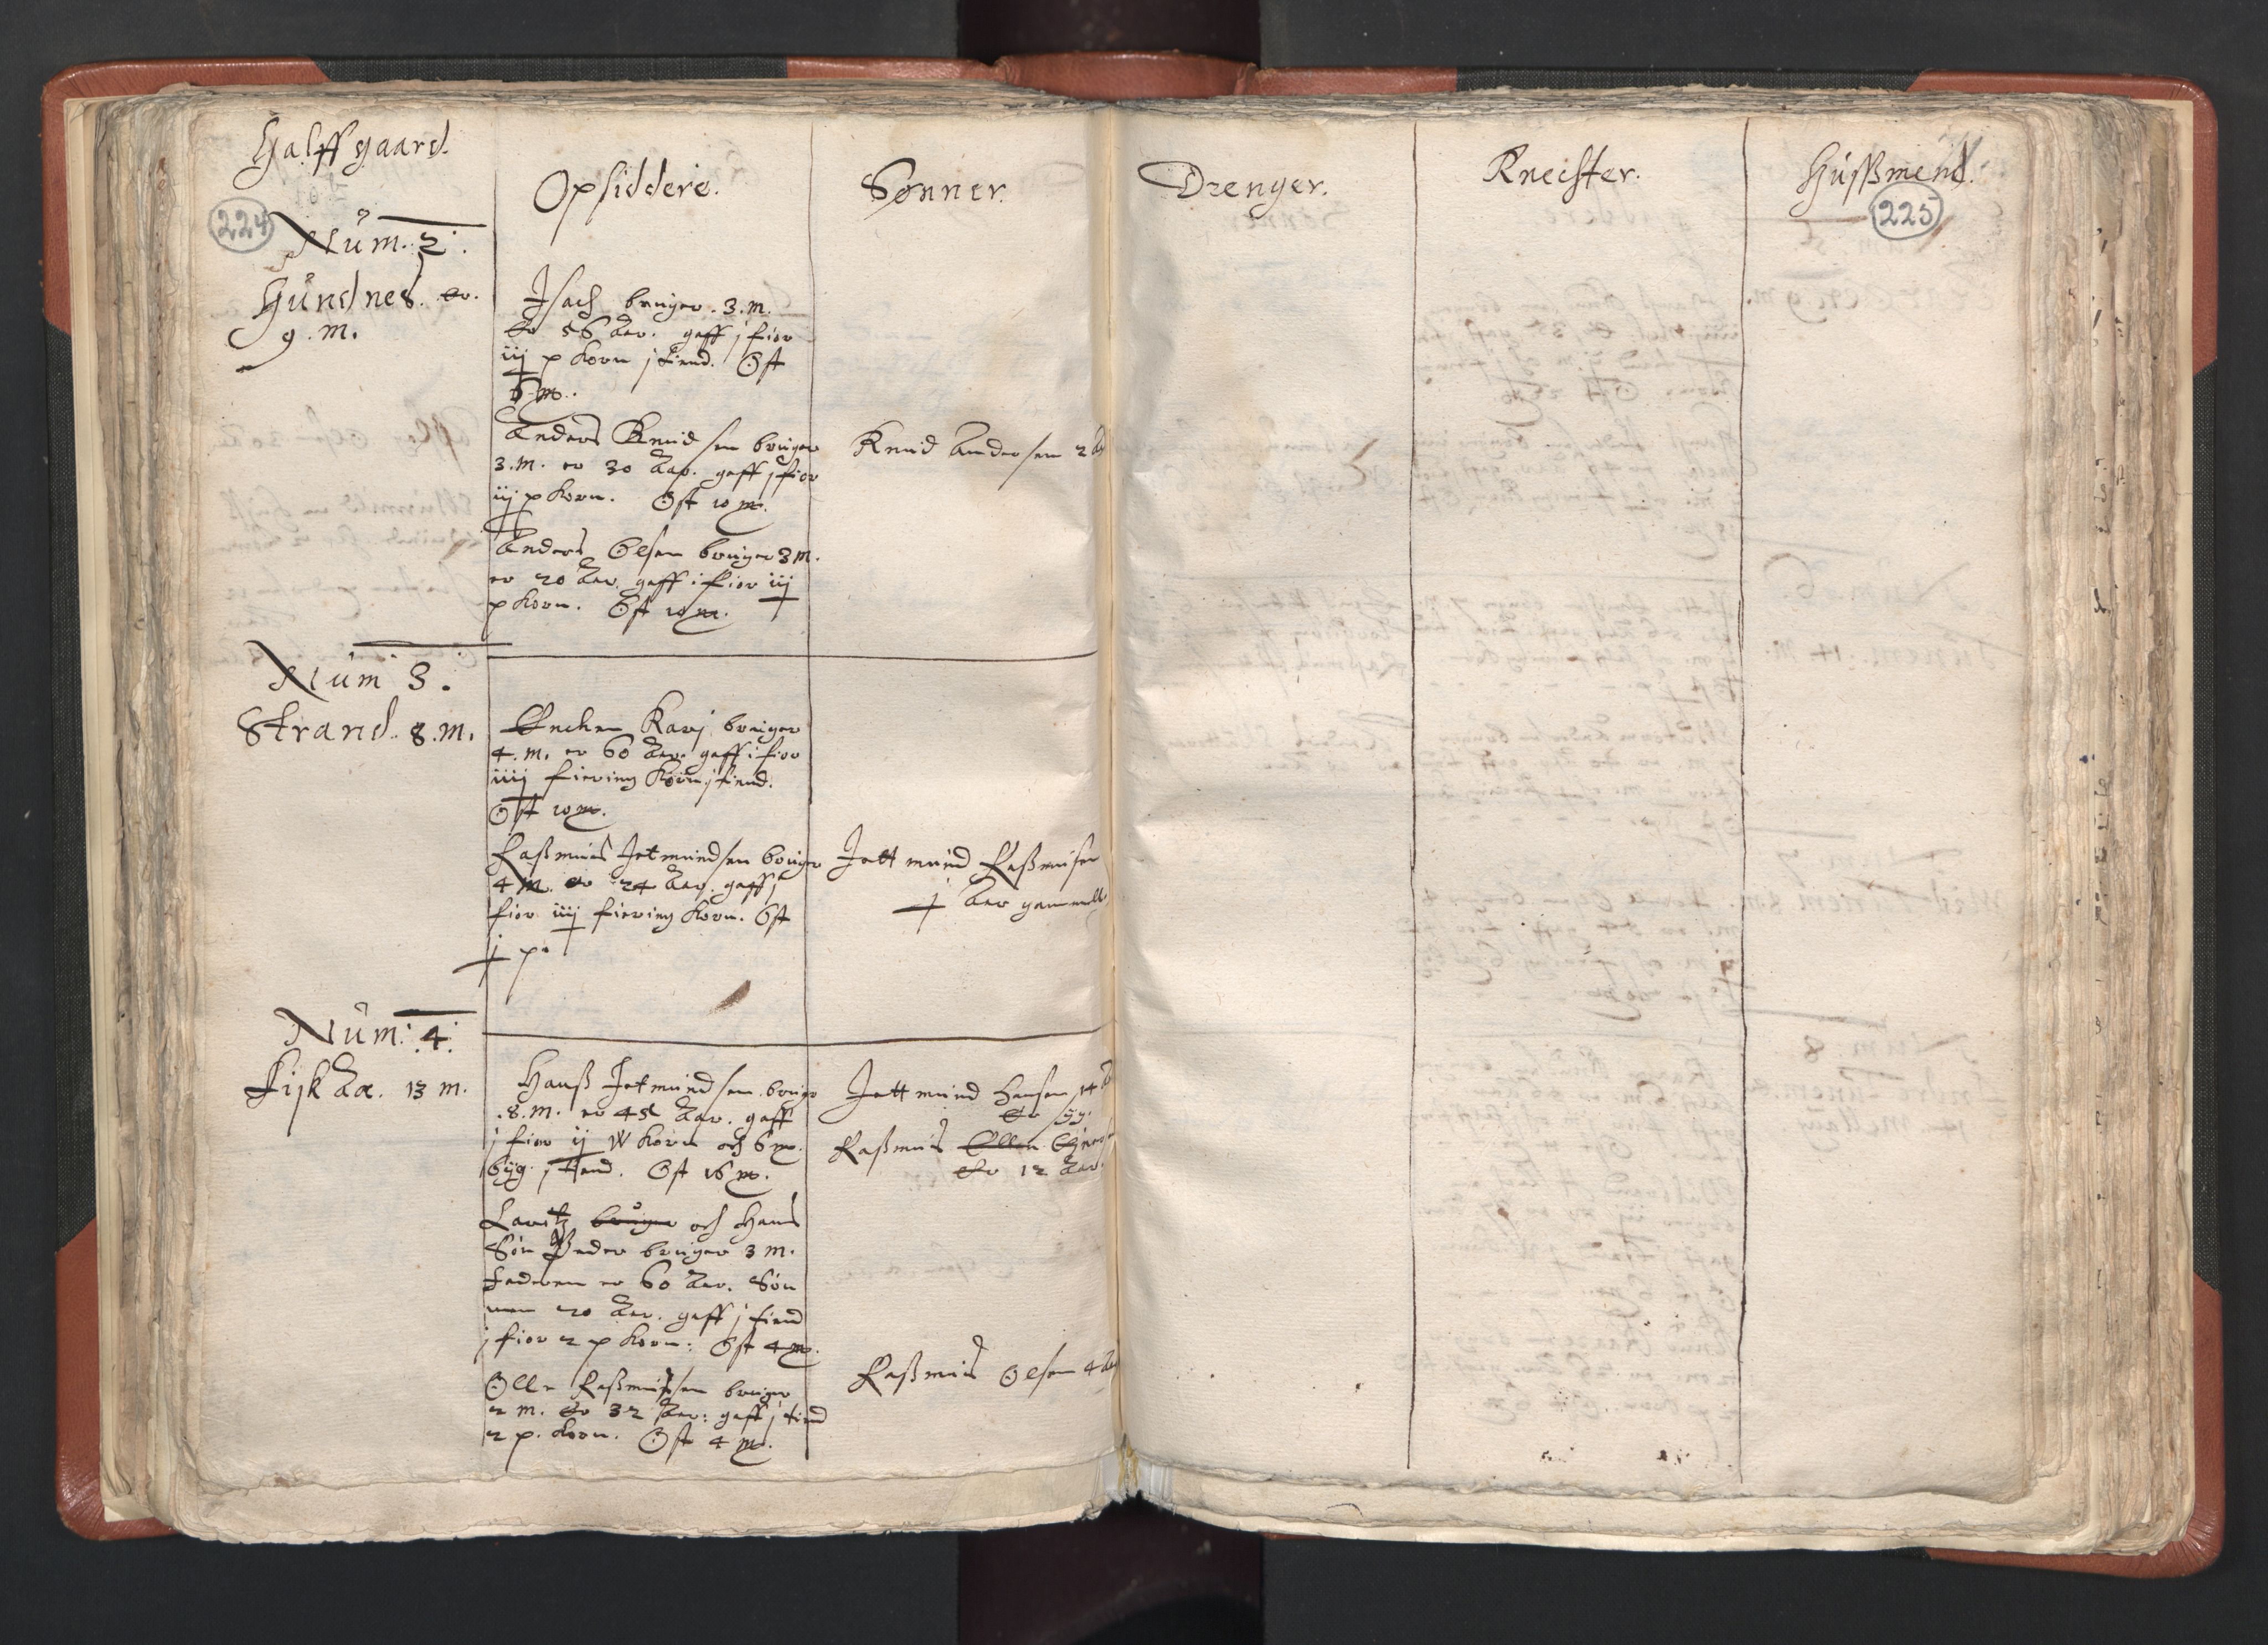 Halffgaard.
Opsiddere.
Sønner.
Drenger.
Knechter.
Hüsßmend.
224
225
Nüm. 2.
Gündnes. er.
9. m.
Isach brüger. 3. m.
er 56 Aar. gaff j fior
iij p korn j tiend. Ost
6 m.
Anders Knüdsen brüger
3. m. er 30 Aar. gaff j fior
iij p korn. Ost 10 m.
Knüd Andersen 2 A
Anders Olsen brüger 3 m.
er 20 Aar. gaff i fior iij
p korn. Ost 10 m.
Nüm 3.
Strand. 8. m.
Karj brüger
4. m. er 60 Aar. gaff i fior
iiij fiering korn j tiend.
Ost 10 m.
Raßmüs Jetmündsen brüger
4 m. er 24 Aar. gaff j
fior iiij fiering korn. Ost
j p.
Jettmünd Raßmüsen
j Aar gammell
Nüm. 4.
Fisk Aa. 13 m.
Hanß Jetmündsen brüger
.8. m. er 45 Aar. gaff
j fior ij W korn och 6 m.
byg. j tiend. Ost 16 m.
Jettmünd Hansen 14 A
Raßmüs Ollen
er 12 Aar.
Lauritz brüger och Hans
Søn Peder brüger 3 m.
faderen er 60 Aar. Søn
nen 20 Aar. gaff j tiend
j fior 2 p korn: Ost 4 m.
Olle Raßmüssen brüger
2 m. er 32 Aar: gaff j tiend
2 p. korn. Ost 4 m.
Raßmüs Olsen 4 A